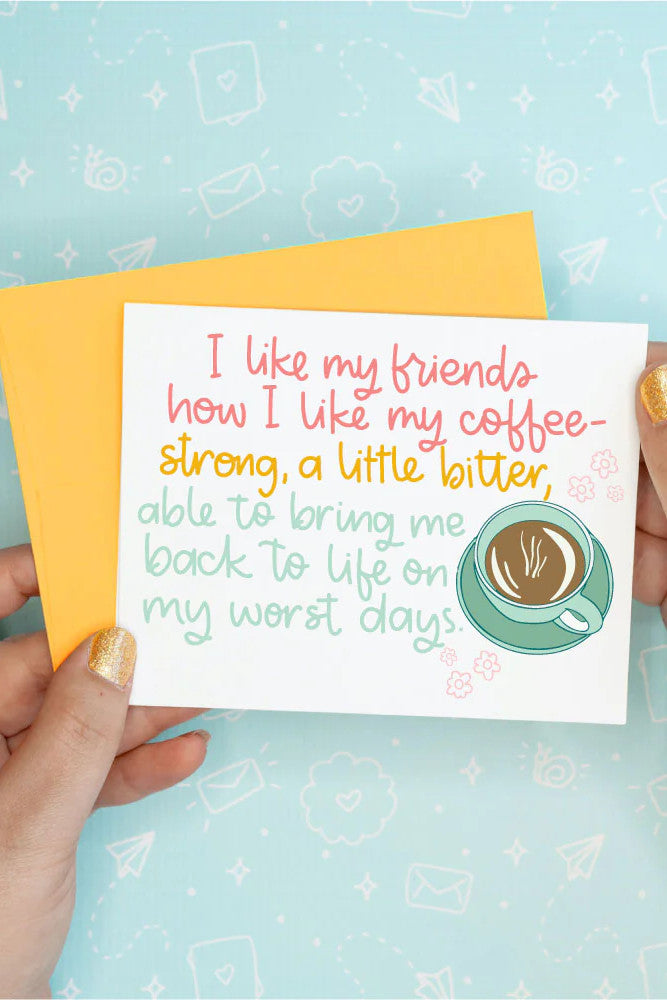 I like my friends
how I like my coffee-
strong, a little bitter,
able to bring me
back to life on
my worst days.